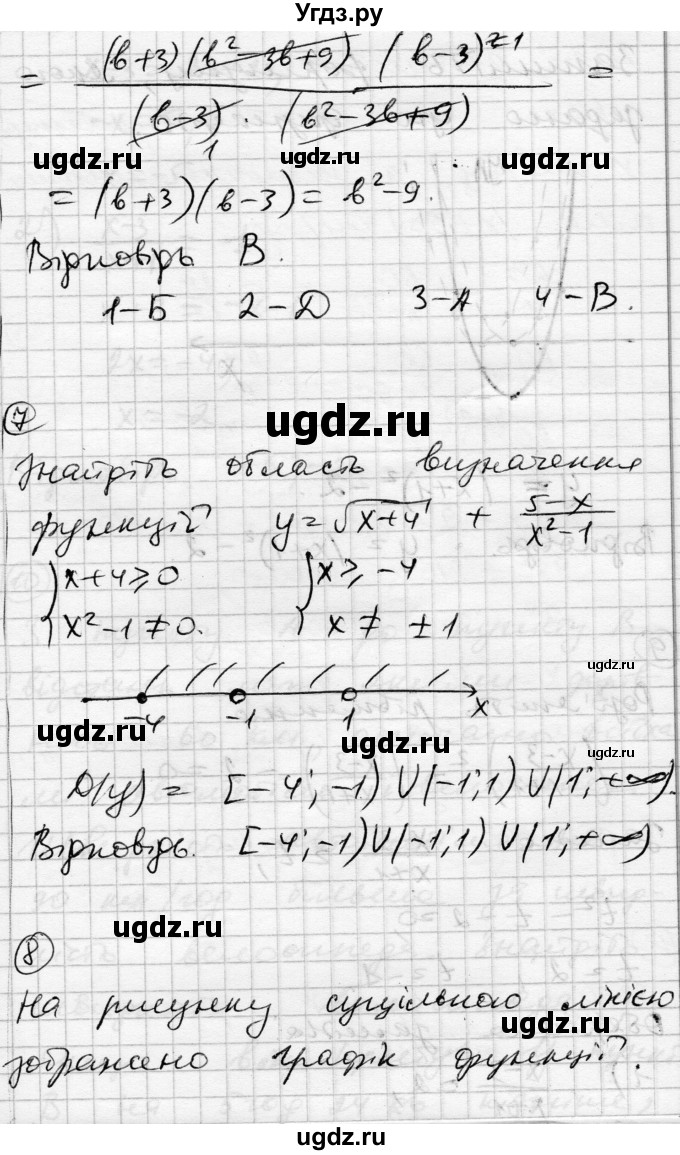 Угдз.ру
= (в+3)(в²-3в+9) (в-3)²⁻¹ / (в-3) · (в²-3в+9) =
1
ugdz.ru ugdz.ru ugdz.ru
= (в+3)(в-3) = в²-9.
Відповідь В.
1-Б 2-Д 3-А 4-В.
7
ugdz.ru
Знайдіть область визначення
функції y = √x+4 + 5-x / x²-1
{ x+4 ≥ 0 { x ≥ -4
x²-1 ≠ 0. x ≠ ±1
ugdz.ru
-4 -1 1 x
ugdz.ru ugdz.ru
D(y) = [-4; -1) U (-1; 1) U (1; +∞).
Відповідь. [-4; -1) U (-1; 1) U (1; +∞)
ugdz.ru
8
На рисунку суцільною лінією
ugdz.ru
зображено графік функції.
ugdz.ru
ugdz.ru